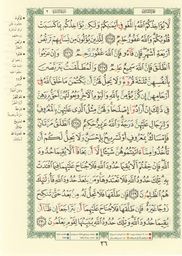 لَّا يُؤَاخِذُكُمُ ٱللَّهُ بِٱللَّغْوِ فِىٓ أَيْمَٰنِكُمْ وَلَٰكِن يُؤَاخِذُكُم بِمَا كَسَبَتْ
قُلُوبُكُمْ وَٱللَّهُ غَفُورٌ حَلِيمٌ لِّلَّذِينَ يُؤْلُونَ مِن نِّسَآئِهِمْ تَرَبُّصُ
أَرْبَعَةِ أَشْهُرٍ فَإِن فَآءُو فَإِنَّ ٱللَّهَ غَفُورٌ رَّحِيمٌ وَإِنْ عَزَمُوا۟
ٱلطَّلَٰقَ فَإِنَّ ٱللَّهَ سَمِيعٌ عَلِيمٌ وَٱلْمُطَلَّقَٰتُ يَتَرَبَّصْنَ
بِأَنفُسِهِنَّ ثَلَٰثَةَ قُرُوٓءٍ وَلَا يَحِلُّ لَهُنَّ أَن يَكْتُمْنَ مَا خَلَقَ ٱللَّهُ
فِىٓ أَرْحَامِهِنَّ إِن كُنَّ يُؤْمِنَّ بِٱللَّهِ وَٱلْيَوْمِ ٱلْءَاخِرِ وَبُعُولَتُهُنَّ أَحَقُّ بِرَدِّهِنَّ
فِى ذَٰلِكَ إِنْ أَرَادُوٓا۟ إِصْلَٰحًا وَلَهُنَّ مِثْلُ ٱلَّذِى عَلَيْهِنَّ بِٱلْمَعْرُوفِ
وَلِلرِّجَالِ عَلَيْهِنَّ دَرَجَةٌ وَٱللَّهُ عَزِيزٌ حَكِيمٌ ٱلطَّلَٰقُ مَرَّتَانِ
فَإِمْسَاكٌۢ بِمَعْرُوفٍ أَوْ تَسْرِيحٌۢ بِإِحْسَٰنٍ وَلَا يَحِلُّ لَكُمْ أَن
تَأْخُذُوا۟ مِمَّآ ءَاتَيْتُمُوهُنَّ شَيْـًٔا إِلَّآ أَن يَخَافَآ أَلَّا يُقِيمَا حُدُودَ
ٱللَّهِ فَإِنْ خِفْتُمْ أَلَّا يُقِيمَا حُدُودَ ٱللَّهِ فَلَا جُنَاحَ عَلَيْهِمَا فِيمَا ٱفْتَدَتْ
بِهِۦ تِلْكَ حُدُودُ ٱللَّهِ فَلَا تَعْتَدُوهَا وَمَن يَتَعَدَّ حُدُودَ ٱللَّهِ فَأُو۟لَٰٓئِكَ
هُمُ ٱلظَّٰلِمُونَ فَإِن طَلَّقَهَا فَلَا تَحِلُّ لَهُۥ مِنۢ بَعْدُ حَتَّىٰ تَنكِحَ
زَوْجًا غَيْرَهُۥ فَإِن طَلَّقَهَا فَلَا جُنَاحَ عَلَيْهِمَآ أَن يَتَرَاجَعَآ إِن ظَنَّآ
أَن يُقِيمَا حُدُودَ ٱللَّهِ وَتِلْكَ حُدُودُ ٱللَّهِ يُبَيِّنُهَا لِقَوْمٍ يَعْلَمُونَ
٣٦